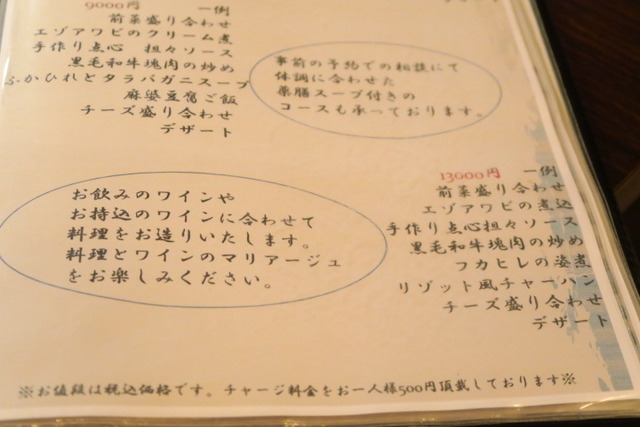 9000円 一例
前菜盛り合わせ
エゾアワビのクリーム煮
手作り点心 担々ソース
黒毛和牛塊肉の炒め
ふかひれとタラバガニスープ
麻婆豆腐ご飯
チーズ盛り合わせ
デザート
事前の予約での相談にて
体調に合わせた
薬膳スープ付きの
コースも承っております。
お飲みのワインや
お持込のワインに合わせて
料理をお造りいたします。
料理とワインのマリアージュ
をお楽しみください。
13000円 一例
前菜盛り合わせ
エゾアワビの煮込
手作り点心担々ソース
黒毛和牛塊肉の炒め
フカヒレの姿煮
リゾット風チャーハン
チーズ盛り合わせ
デザート
※お値段は税込価格です。チャージ料金をお一人様500円頂戴しております※